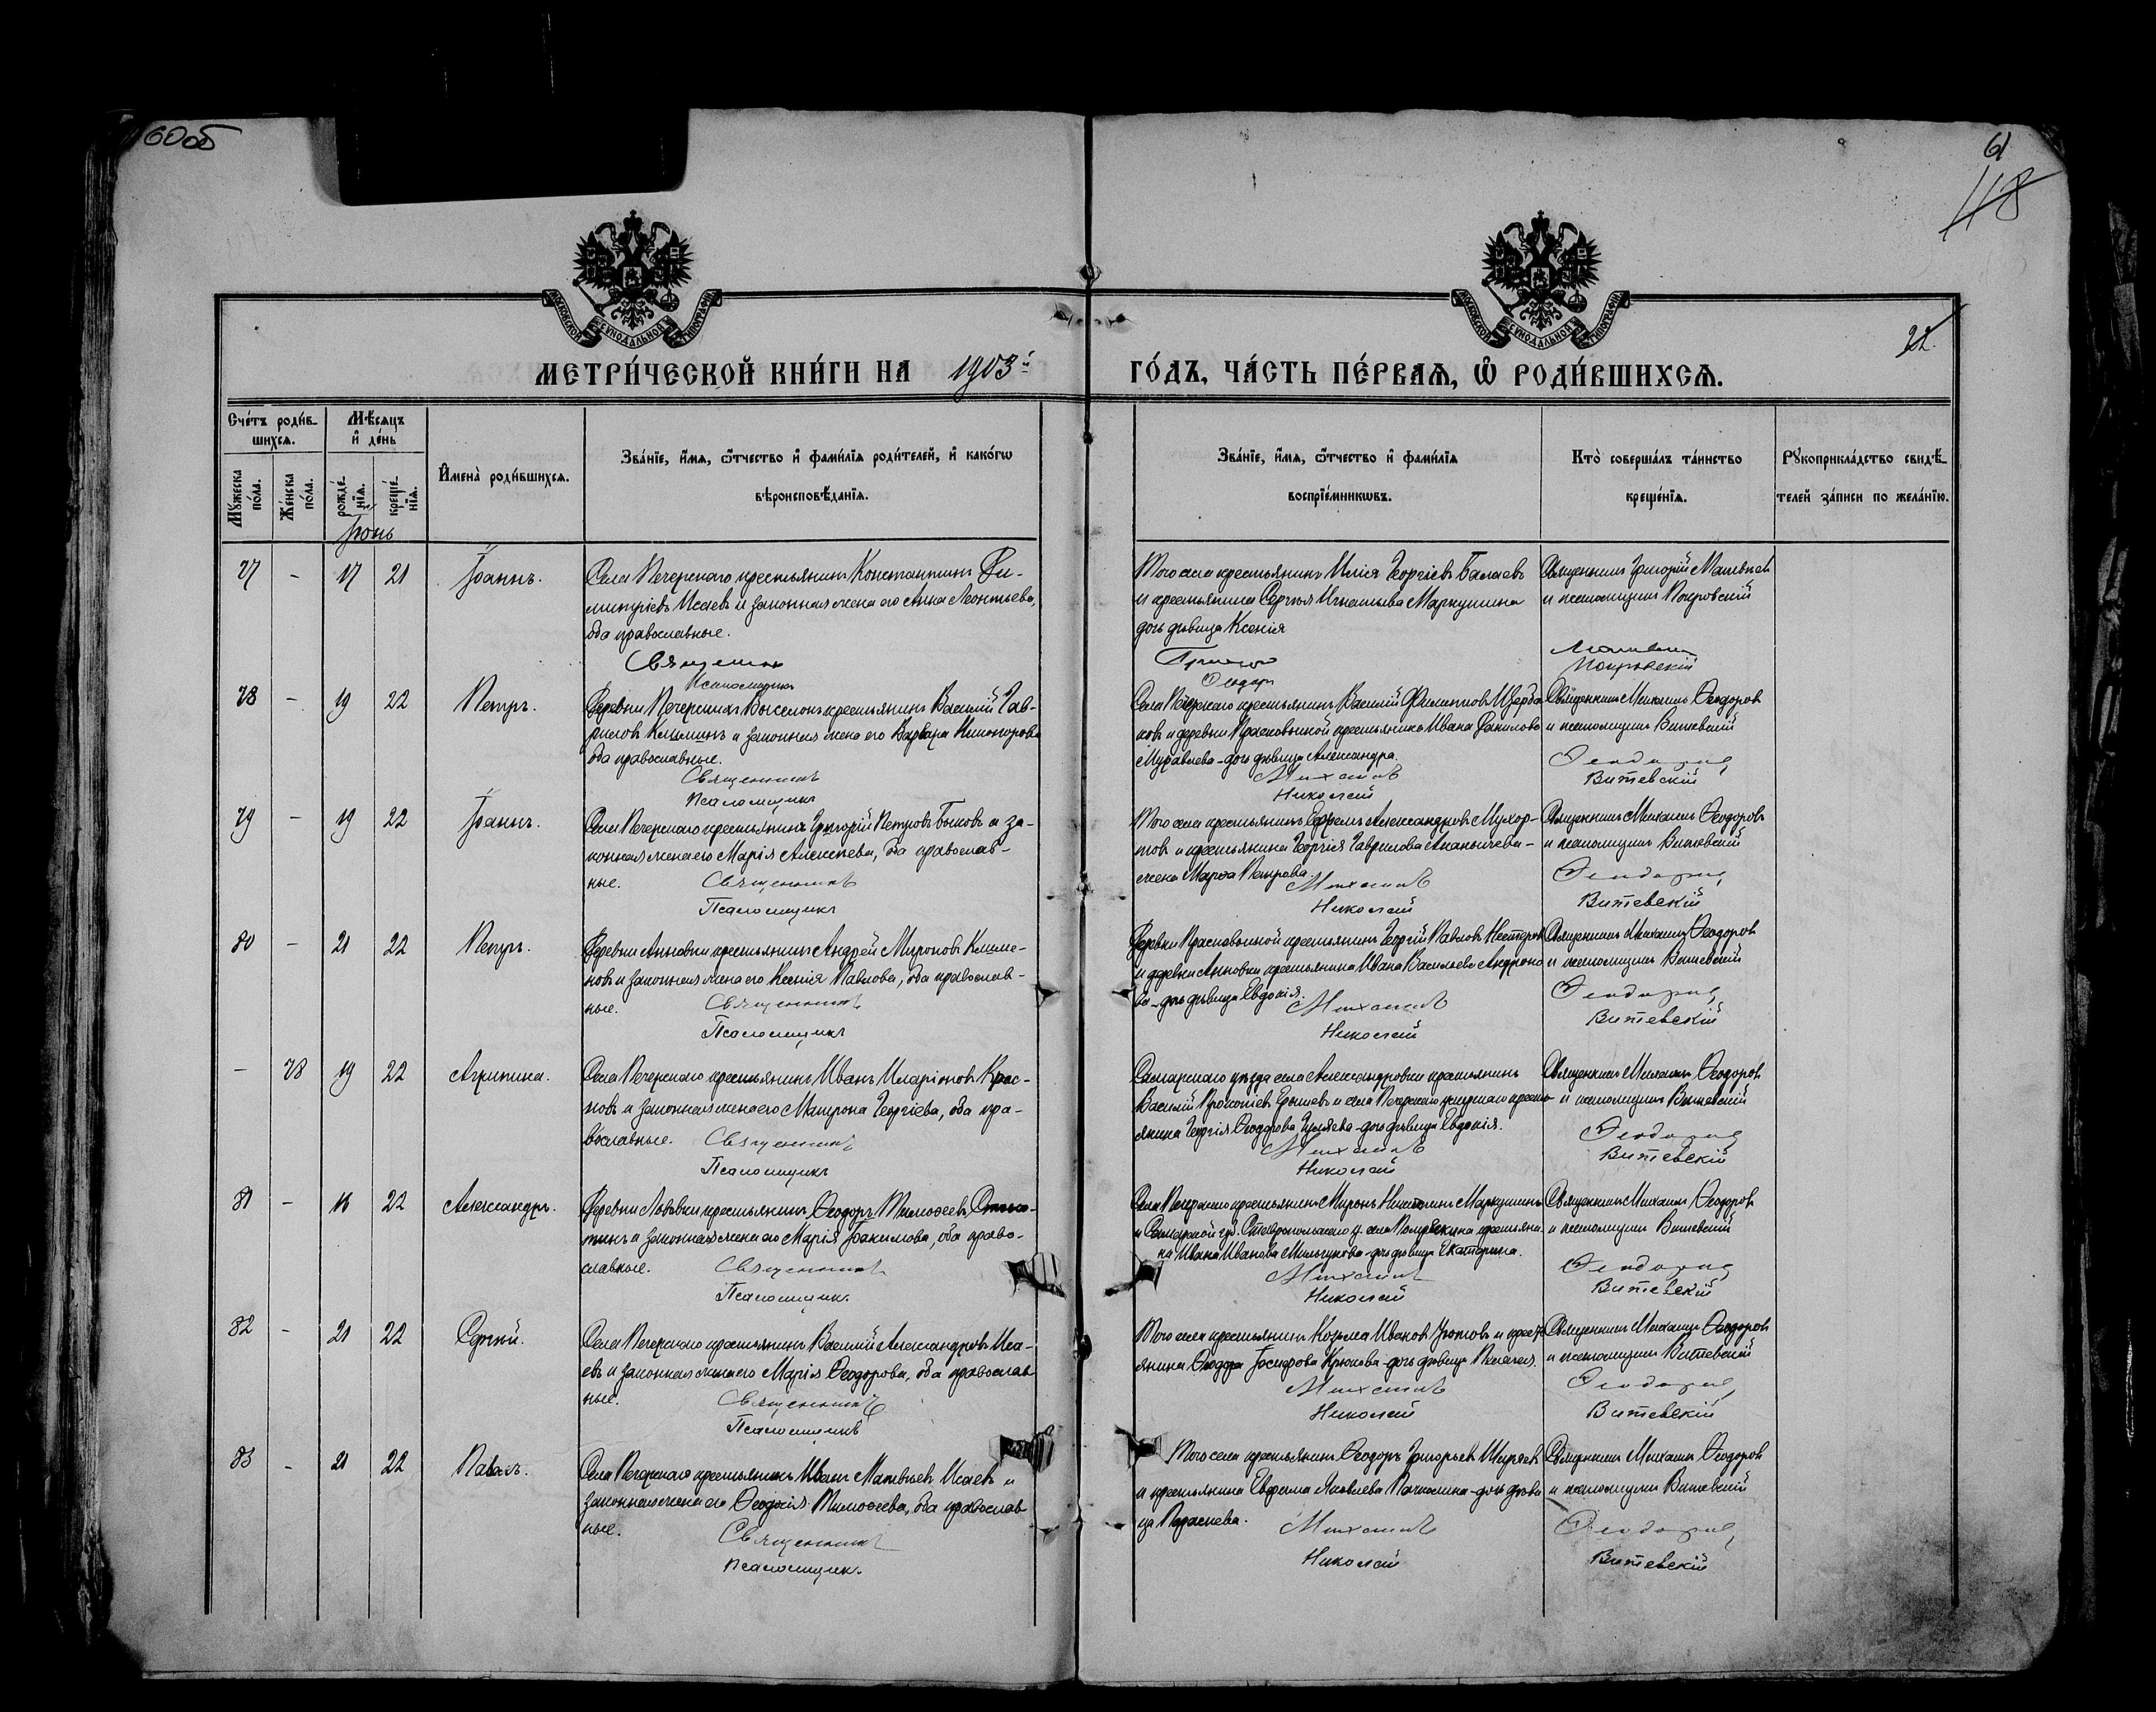 60об
61
118
22.
МОСКОВСКОЙ СѴНОДАЛЬНОЙ ТИПОГРАФІИ
МОСКОВСКОЙ СѴНОДАЛЬНОЙ ТИПОГРАФІИ
МЕТРИ́ЧЕСКОЙ КНИ́ГИ НА 1903й ГО́ДЪ, ЧА́СТЬ ПЕ́РВАѦ, Ѡ҆ РОДИ́ВШИХСѦ.
Сче́тъ роди́в-
шихсѧ.
Мѣ́сѧцъ
и҆ де́нь
Мꙋ́жеска по́ла.
Же́нска по́ла.
рожде́-нїѧ.
креще́-нїѧ.
И҆мена̀ роди́вшихсѧ.
Зва́нїе, и҆́мѧ, ѻ҆́тчество и҆ фами́лїѧ роди́телей, и҆ како́гѡ
вѣроисповѣ́данїѧ.
Зва́нїе, и҆́мѧ, ѻ҆́тчество и҆ фами́лїѧ
воспрїе́мникѡвъ.
Кто̀ соверша́лъ та́инство
креще́нїѧ.
Рꙋкоприкла́дство свидѣ́-
телей за́писи по жела́нїю.
Іюнь
77 - 17 21 Іоаннъ.
Села Печерскаго крестьянинъ Константинъ Ди-
митріевъ Исаевъ и законная жена его Анна Леонтьева,
оба православные.
Священник
Псаломщикъ
Того села крестьянинъ Илія Георгіевъ Балаевъ
и крестьянина Сергѣя Игнатьева Маркушина
дочь дѣвица Ксенія
Григорій
Ѳеодоръ
Священникъ Григорій Матвѣевъ
и псаломщикъ Покровскій
Матвѣевъ
Покровскій
78 - 19 22 Петръ.
Деревни Печерскихъ Выселокъ крестьянинъ Василій Гав-
риловъ Климинъ и законная жена его Варвара Никонорова
оба православные.
Священникъ
Псаломщикъ
Села Печерскаго крестьянинъ Василій Филипповъ Щерба-
ковъ и деревни Прасковьиной крестьянина Ивана Данилова
Муравлева - дочь дѣвица Александра.
Михаилъ
Николай
Священникъ Михаилъ Ѳеодоровъ
и псаломщикъ Витевскій
Ѳеодоровъ
Витевскій
79 - 19 22 Іоаннъ.
Села Печерскаго крестьянинъ Григорій Петровъ Быковъ и за-
конная жена его Марія Алексѣева, оба православ-
ные. Священникъ
Псаломщикъ
Того села крестьянинъ Ефремъ Александровъ Мухор-
товъ и крестьянина Георгія Гаврилова Ананьичева -
жена Марѳа Петрова.
Михаилъ
Николай
Священникъ Михаилъ Ѳеодоровъ
и псаломщикъ Витевскій
Ѳеодоровъ
Витевскій
80 - 21 22 Петръ.
Деревни Анновки крестьянинъ Андрей Мироновъ Климе-
новъ и законная жена его Ксенія Павлова, оба православ-
ные. Священникъ
Псаломщикъ
Деревни Прасковьиной крестьянинъ Георгій Павловъ Нестеровъ
и деревни Анновки крестьянина Ивана Васильева Андроно-
ва - дочь дѣвица Евдокія.
Михаилъ
Николай
Священникъ Михаилъ Ѳеодоровъ
и псаломщикъ Витевскій
Ѳеодоровъ
Витевскій
- 78 19 22 Агрипина.
Села Печерскаго крестьянинъ Иванъ Иларіоновъ Крас-
новъ и законная жена его Матрона Георгіева, оба пра-
вославные. Священникъ
Псаломщикъ
Самарскаго уѣзда села Александровки крестьянинъ
Василій Прокопіевъ Ерышевъ и села Печерскаго крестья-
янина Георгія Ѳеодорова Гуляева - дочь дѣвица Евдокія.
Михаилъ
Николай
Священникъ Михаилъ Ѳеодоровъ
и псаломщикъ Витевскій
Ѳеодоровъ
Витевскій
81 - 16 22 Александръ.
Деревни Львовки крестьянинъ Ѳеодоръ Тимоѳеевъ
тинъ и законная жена его Марія Іоакимова, оба право-
славные. Священникъ
Псаломщикъ
Села Печерскаго крестьянинъ Миронъ Никитинъ Маркушинъ
и Самарской губ. Ставропольскаго у. села крестьяни-
на Ивана Иванова дочь дѣвица Екатерина.
Михаилъ
Николай
Священникъ Михаилъ Ѳеодоровъ
и псаломщикъ Витевскій
Ѳеодоровъ
Витевскій
82 - 21 22 Сергій.
Села Печерскаго крестьянинъ Василій Александровъ Иса-
евъ и законная жена его Марія Ѳеодорова, оба православ-
ные. Священникъ
Псаломщикъ
Того села крестьянинъ Козьма Ивановъ Утовъ и кресть-
янина Ѳеодора Іосифова Крюкова - дочь дѣвица Пелагея.
Михаилъ
Николай
Священникъ Михаилъ Ѳеодоровъ
и псаломщикъ Витевскій
Ѳеодоровъ
Витевскій
83 - 21 22 Павелъ.
Села Печерскаго крестьянинъ Иванъ Матвѣевъ Исаевъ и
законная жена его Ѳеодосія Тимоѳеева, оба православ-
ные. Священникъ
Псаломщикъ
Того села крестьянинъ Ѳеодоръ Григорьевъ Ширяевъ
и крестьянина Евфима Яковлева дочь дѣви-
ца Параскева.
Михаилъ
Николай
Священникъ Михаилъ Ѳеодоровъ
и псаломщикъ Витевскій
Ѳеодоровъ
Витевскій